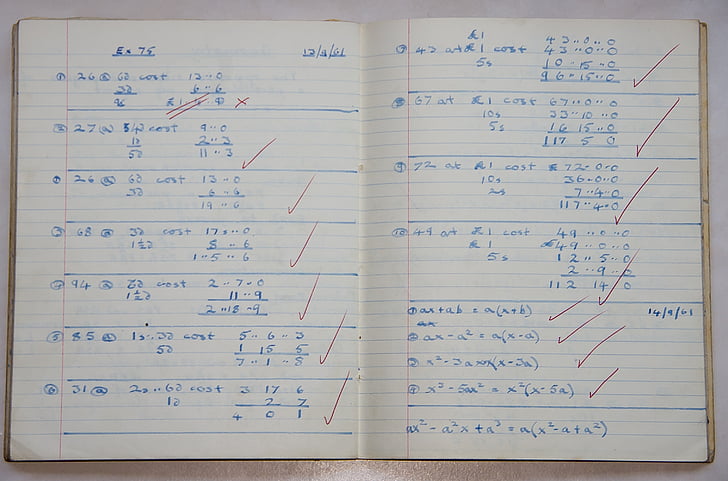 Ex 75 12/9/61
① 26 @ 6d cost 13 .. 0
3d 6 .. 6
② 27 @ 4d cost 9 .. 0
1d 2 .. 3
5d 11 .. 3
① 26 @ 6d cost 13 .. 0
3d 6 .. 6
19 .. 6
③ 68 @ 3d cost 17s .. 0
1½d 8 .. 6
1 .. 5 .. 6
④ 94 @ 6d cost 2 .. 7 .. 0
1½d 11 .. 9
2 .. 18 .. 9
⑤ 85 @ 1s .. 3d cost 5 .. 6 .. 3
5d 1 15 5
7 .. 1 .. 8
⑥ 31 @ 2s .. 6d cost 3 17 6
1d 2 7
4 0 1
£1 43 .. 0 .. 0
⑦ 43 at £1 cost 43 .. 0 .. 0
5s 10 .. 15 .. 0
96 .. 15 .. 0
⑧ 67 at £1 cost 67 .. 0 .. 0
10s 33 .. 10 .. 0
5s 16 15 .. 0
117 5 0
⑨ 72 at £1 cost £72 .. 0 .. 0
10s 36 .. 0 .. 0
2s 7 .. 4 .. 0
117 .. 4 .. 0
⑩ 49 at £1 cost 49 .. 0 .. 0
£1 £49 .. 0 .. 0
5s 12 .. 5 .. 0
2 .. 9 .. 0
112 14 0
① ax + ab = a(x+b) 14/9/61
② ax - a² = a(x-a)
③ x² - 3ax = x(x-3a)
④ x³ - 5ax² = x²(x-5a)
ax² - a²x + a³ = a(x²-a+a²)